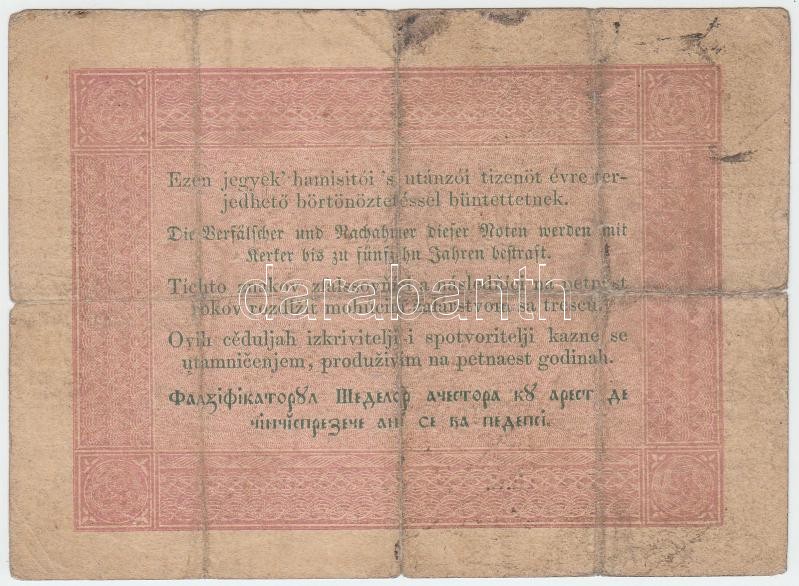 Ezen jegyek' hamisitói 's utánzói tizenöt évre ter-
jedhető börtönöztetéssel büntettetnek.
Die Verfälscher und Nachahmer dieser Noten werden mit
Kerker bis zu fünfzehn Jahren bestraft.
Tíchto znakov a následňíci na petnást
rokov sa trescú.
Ovih cěduljah izkrivitelji i spotvoritelji kazne se
utamničenjem, produživim na petnaest godinah.
Фалзіфікаторꙋл Шеделор ачестора кꙋ арест де
чінчіспрезече ані се ва педепсі.
darabanth